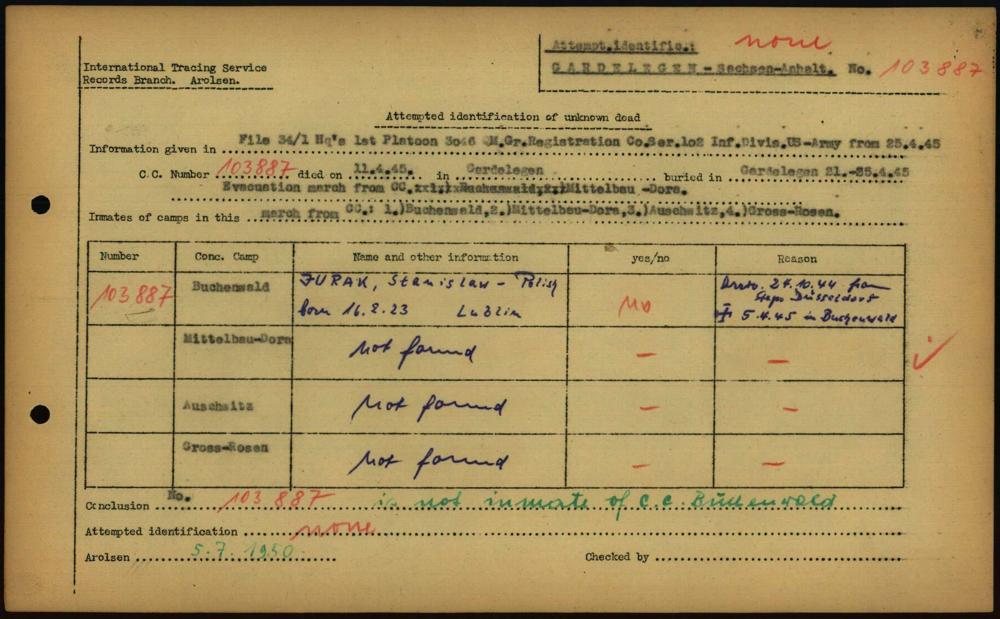 Attempt.identific.: none
International Tracing Service
Records Branch. Arolsen.
GARDELEGEN - Sachsen-Anhalt. No. 103887
Attempted identification of unknown dead
Information given in File 34/1 Hq's 1st Platoon 3046 QM.Gr.Registration Co.Ser.1o2 Inf.Divis.US-Army from 25.4.45
C.C. Number 103887 died on 11.4.45. in Gardelegen buried in Gardelegen 21.-25.4.45
Evacuation march from CC. Mittelbau -Dora.
Inmates of camps in this march from CC.: 1.)Buchenwald,2.)Mittelbau-Dora,3.)Auschwitz,4.)Gross-Rosen.
Number Conc. Camp Name and other information yes/no Reason
103887 Buchenwald JURAK, Stanislaw - Polish no 24.10.44 from
Stapo Düsseldorf
born 16.2.23 Lublin 5.4.45 in Buchenwald
Mittelbau-Dora not found — —
Auschwitz not found — —
Gross-Rosen not found — —
Conclusion No. 103887 is not inmate of C.C. Buchenwald
Attempted identification none
Arolsen 5.7.1950 Checked by